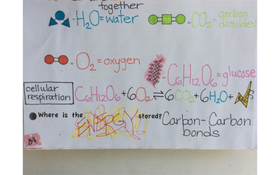 together
H₂O=water
CO₂ carbon dioxide
O₂=oxygen
C₆H₁₂O₆=glucose
cellular respiration C₆H₁₂O₆+6O₂⇌6CO₂+6H₂O+
Where is the ENERGY stored? Carbon-Carbon bonds